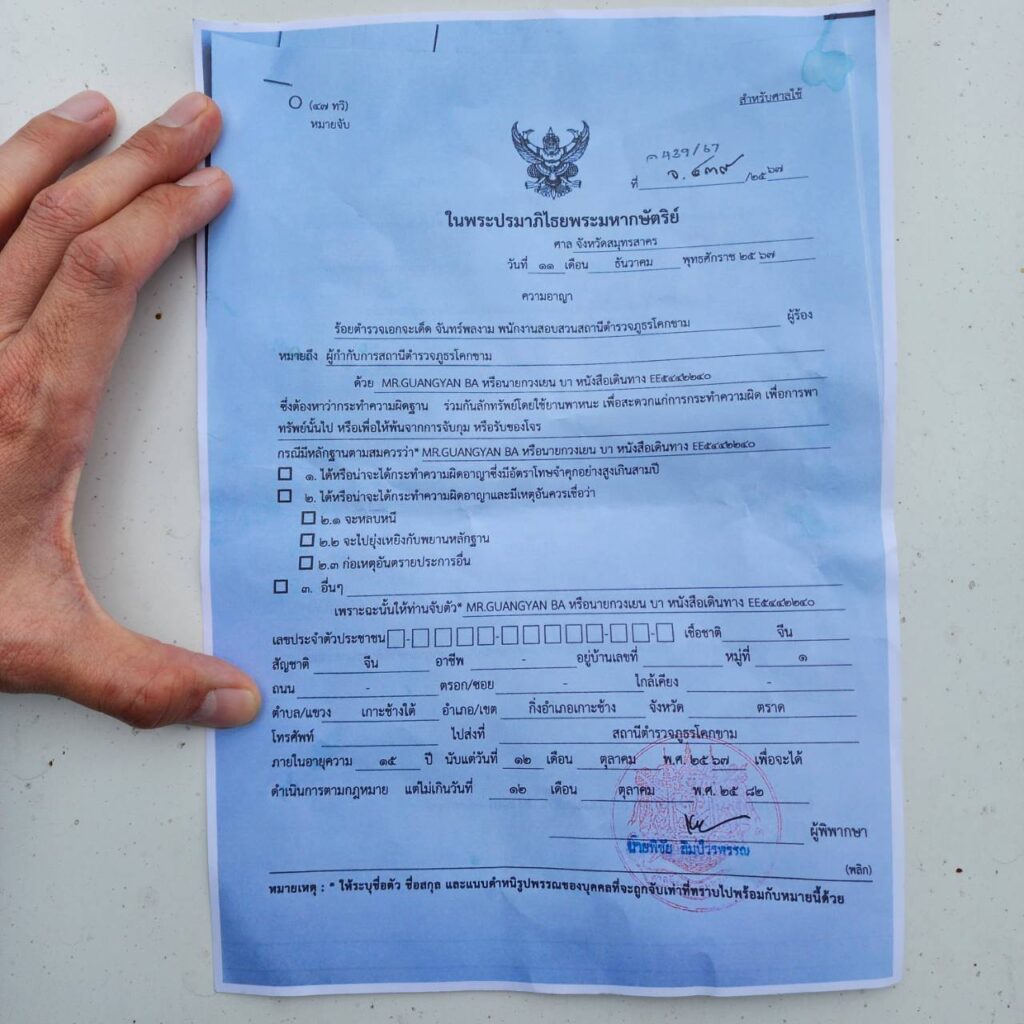 (๔๗ ทวิ)
หมายจับ
สำหรับศาลใช้
จ439/67
ที่ จ.๔๓๙ /๒๕๖๗
ในพระปรมาภิไธยพระมหากษัตริย์
ศาล จังหวัดสมุทรสาคร
วันที่ ๑๑ เดือน ธันวาคม พุทธศักราช ๒๕ ๖๗
ความอาญา
ร้อยตำรวจเอกจะเด็ด จันทร์พลงาม พนักงานสอบสวนสถานีตำรวจภูธรโคกขาม ผู้ร้อง
หมายถึง ผู้กำกับการสถานีตำรวจภูธรโคกขาม
ด้วย MR.GUANGYAN BA หรือนายกวงเยน บา หนังสือเดินทาง EE๕๔๔๒๒๔๐
ซึ่งต้องหาว่ากระทำความผิดฐาน ร่วมกันลักทรัพย์โดยใช้ยานพาหนะ เพื่อสะดวกแก่การกระทำความผิด เพื่อการพา
ทรัพย์นั้นไป หรือเพื่อให้พ้นจากการจับกุม หรือรับของโจร
กรณีมีหลักฐานตามสมควรว่า* MR.GUANGYAN BA หรือนายกวงเยน บา หนังสือเดินทาง EE๕๔๔๒๒๔๐
๑. ได้หรือน่าจะได้กระทำความผิดอาญาซึ่งมีอัตราโทษจำคุกอย่างสูงเกินสามปี
๒. ได้หรือน่าจะได้กระทำความผิดอาญาและมีเหตุอันควรเชื่อว่า
๒.๑ จะหลบหนี
๒.๒ จะไปยุ่งเหยิงกับพยานหลักฐาน
๒.๓ ก่อเหตุอันตรายประการอื่น
๓. อื่นๆ
เพราะฉะนั้นให้ท่านจับตัว* MR.GUANGYAN BA หรือนายกวงเยน บา หนังสือเดินทาง EE๕๔๔๒๒๔๐
เลขประจำตัวประชาชน เชื้อชาติ จีน
สัญชาติ จีน อาชีพ - อยู่บ้านเลขที่ หมู่ที่ ๑
ถนน - ตรอก/ซอย - ใกล้เคียง -
ตำบล/แขวง เกาะช้างใต้ อำเภอ/เขต กิ่งอำเภอเกาะช้าง จังหวัด ตราด
โทรศัพท์ ไปส่งที่ สถานีตำรวจภูธรโคกขาม
ภายในอายุความ ๑๕ ปี นับแต่วันที่ ๑๒ เดือน ตุลาคม พ.ศ. ๒๕ ๖๗ เพื่อจะได้
ดำเนินการตามกฎหมาย แต่ไม่เกินวันที่ ๑๒ เดือน ตุลาคม พ.ศ. ๒๕ ๘๒
ผู้พิพากษา
นายพิชัย
(พลิก)
หมายเหตุ : * ให้ระบุชื่อตัว ชื่อสกุล และแนบตำหนิรูปพรรณของบุคคลที่จะถูกจับเท่าที่ทราบไปพร้อมกับหมายนี้ด้วย